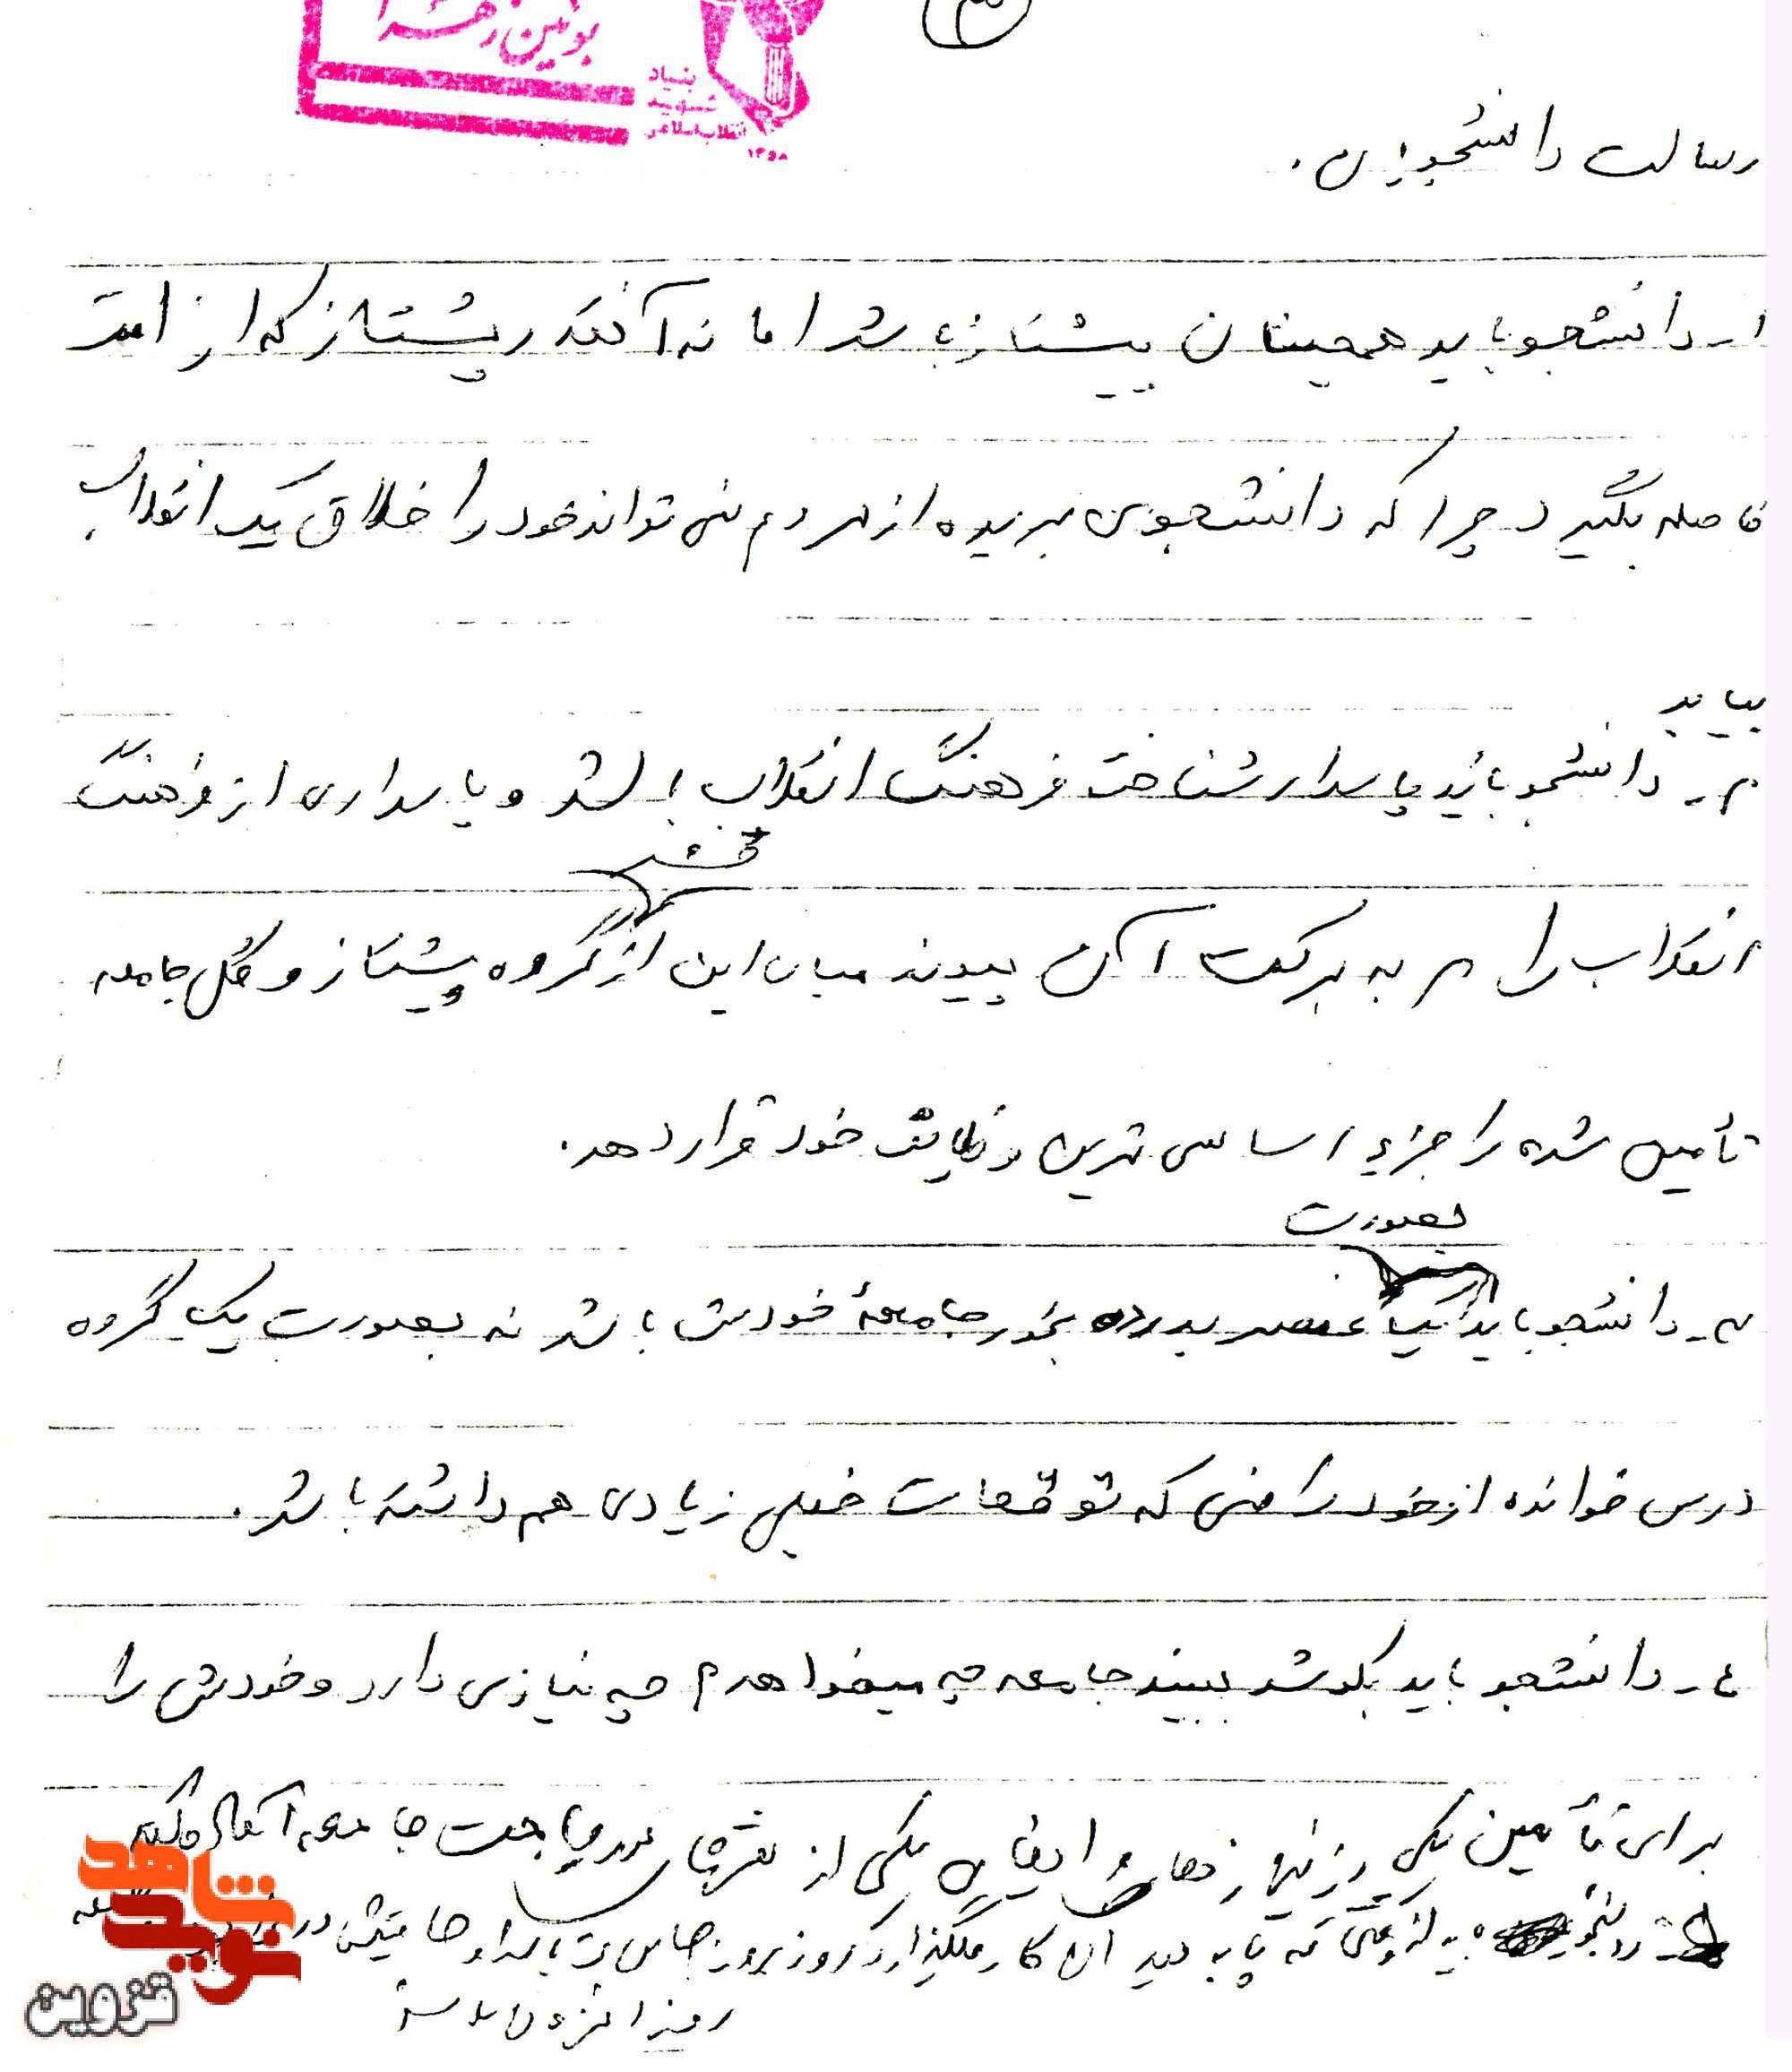 بوئین زهرا
بنیاد
شهید
انقلاب اسلامی
۱۳۵۸
رسالت دانشجویان.
۱ـ دانشجو باید همچنان پیشتاز باشد اما نه آنقدر پیشتاز که از امت
فاصله بگیرد چرا که دانشجوی بریده از مردم نمی تواند خود را خلاق یک انقلاب
بیابد
۲ـ دانشجو باید پاسدار شناخت فرهنگ انقلاب باشد و پاسداری از فرهنگ
قشر
انقلاب را به برکت آن پیوند میان این از گروه پیشتاز و کل جامعه
تأمین شده را جزء اساسی ترین وظایف خود قرار دهد.
بصورت
۳ـ دانشجو باید عنصر بدرد بخور جامعهٔ خودش باشد نه بصورت یک گروه
درس خوانده از خود راضی که توقعات خیلی زیادی هم داشته باشد.
۴ـ دانشجو باید بکوشد ببیند جامعه چه میخواهد چه نیازی دارد و خودش را
برای تأمین یکی از نیازها و ایفای یکی از نقشهای مورد حاجت جامعه آماده کند
دانشجو باید از وقتی که پا به این کار میگذارد روز بروز
روز افزون باشد
شاهد
نوید
قزوین